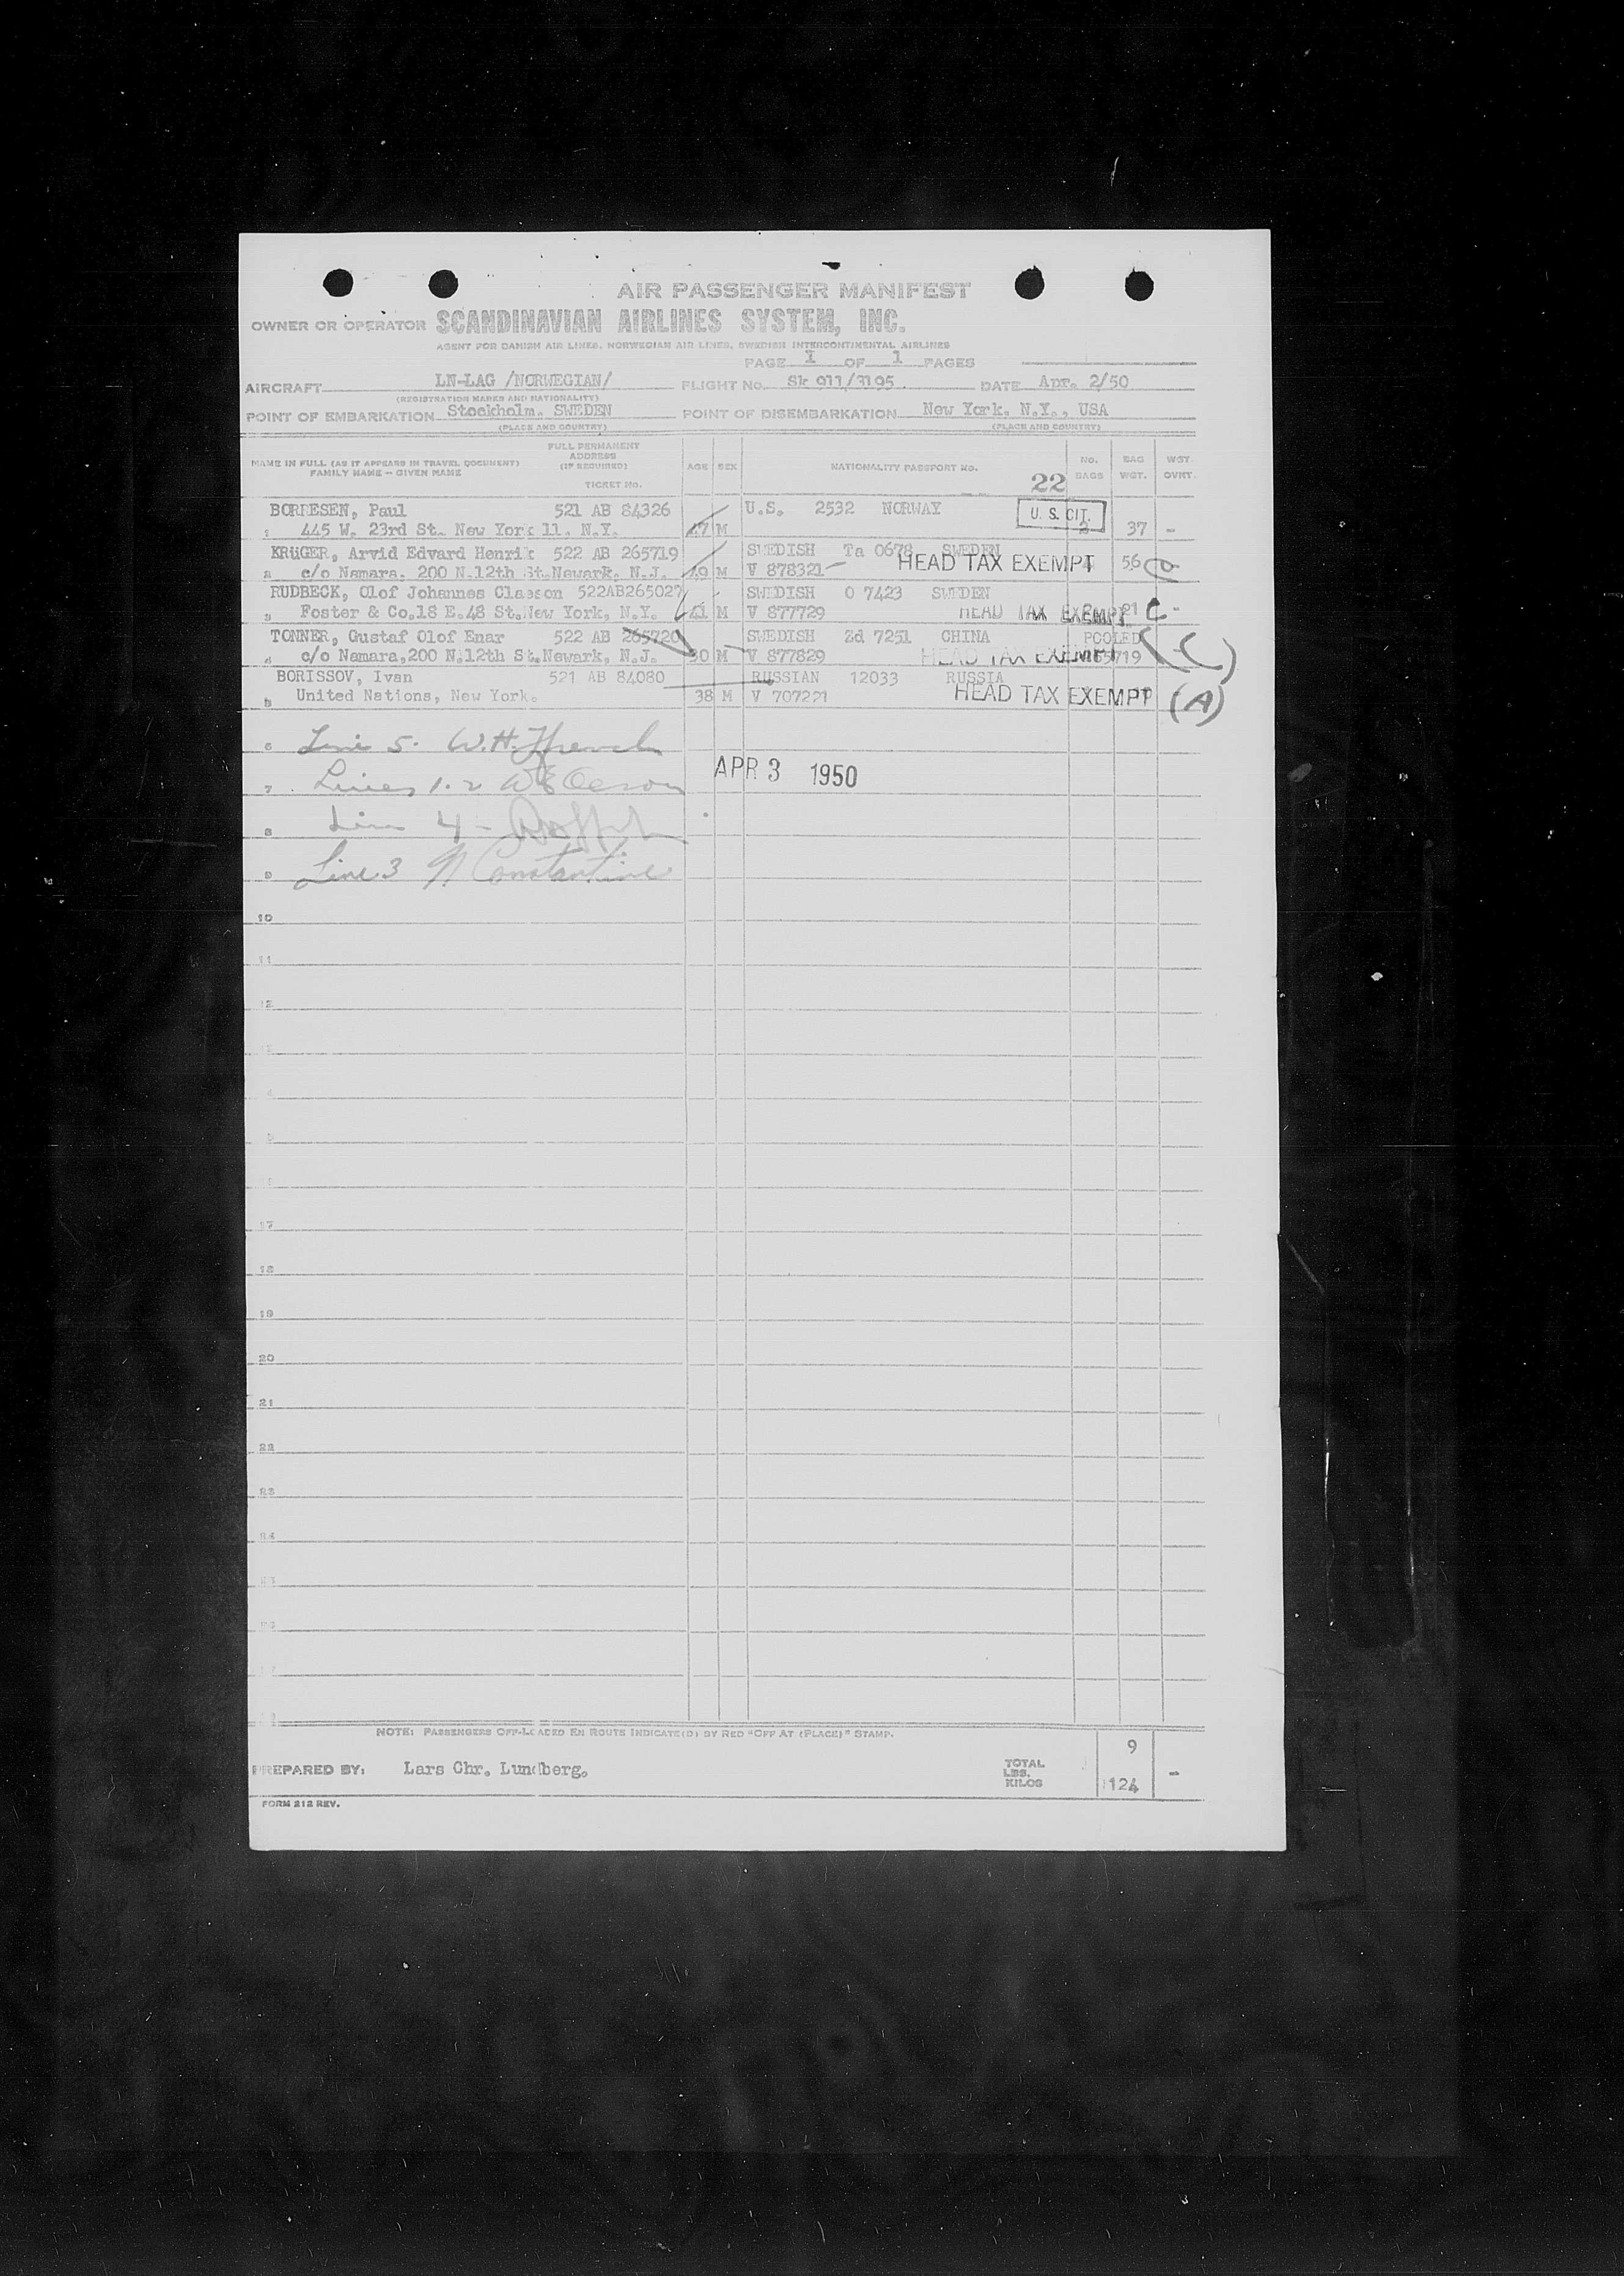 AIR PASSENGER MANIFEST
OWNER OR OPERATOR SCANDINAVIAN AIRLINES SYSTEM, INC.
AGENT FOR DANISH AIR LINES, NORWEGIAN AIR LINES, SWEDISH INTERCONTINENTAL AIRLINES
PAGE 1 OF 1 PAGES
AIRCRAFT LN-LAG /NORWEGIAN/ FLIGHT No. Sk 911/3195 DATE Apr. 2/50
(REGISTRATION MARKS AND NATIONALITY)
POINT OF EMBARKATION Stockholm, SWEDEN POINT OF DISEMBARKATION New York, N.Y., USA
(PLACE AND COUNTRY) (PLACE AND COUNTRY)
NAME IN FULL (AS IT APPEARS IN TRAVEL DOCUMENT) FAMILY NAME — GIVEN NAME FULL PERMANENT ADDRESS (IF REQUIRED) TICKET No. AGE SEX NATIONALITY PASSPORT No. 22 NO. BAGS BAG WGT. WGT. OVRT.
BORRESEN, Paul 521 AB 84326 U.S. 2532 NORWAY U. S. CIT.
1 445 W. 23rd St. New York 11, N.Y. 47 M 37 -
KRüGER, Arvid Edvard Henrik 522 AB 265719 SWEDISH Ta 0678 SWEDEN
2 c/o Namara, 200 N.12th St.Newark, N.J. M V 878321 HEAD TAX EXEMPT 56
RUDBECK, Olof Johannes Claeson 522AB265027 SWEDISH O 7423 SWEDEN
3 Foster & Co.18 E.48 St.New York, N.Y. 41 M V 877729 HEAD TAX EXEMPT 21 C -
TONNER, Gustaf Olof Enar 522 AB 265720 SWEDISH Zd 7251 CHINA POOLED
4 c/o Namara,200 N.12th St.Newark, N.J. 30 M V 877829 HEAD TAX EXEMPT (C)
BORISSOV, Ivan 521 AB 84080 RUSSIAN 12033 RUSSIA
5 United Nations, New York. 38 M V 707221 HEAD TAX EXEMPT (A)
6 Line 5. W.H. French
7 Lines 1.2
APR 3 1950
8 Line 4 -
9 Line 3 N Constantine
10
11
12
17
18
19
20
21
22
23
24
NOTE: PASSENGERS OFF-LOADED EN ROUTE INDICATE(D) BY RED "OFF AT (PLACE)" STAMP.
9
PREPARED BY: Lars Chr. Lundberg. TOTAL LBS. KILOS 124 -
FORM 212 REV.